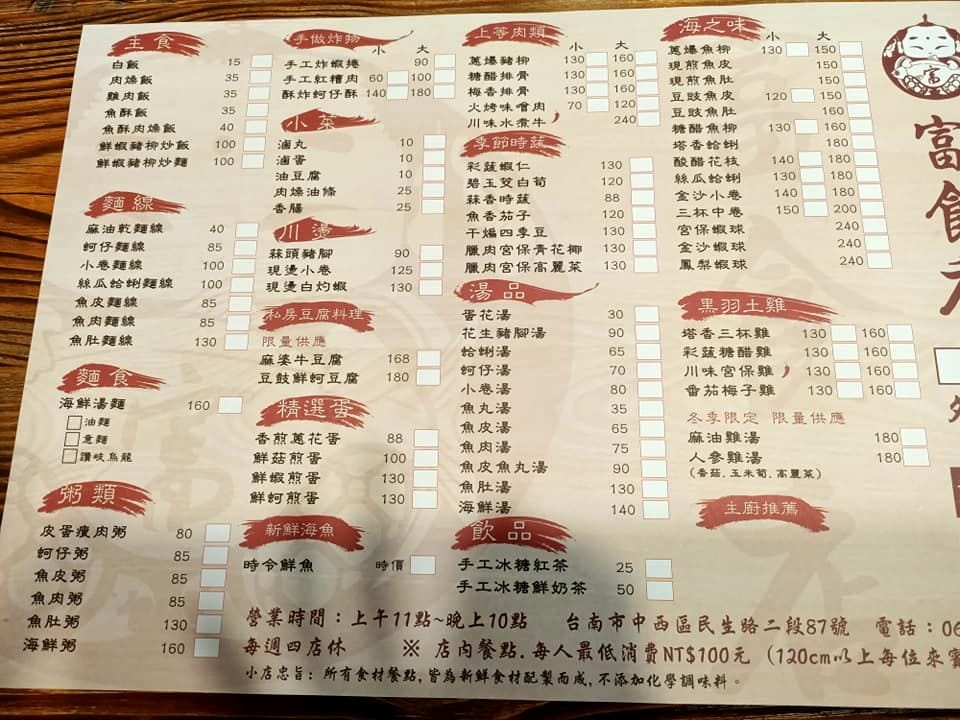 主食
白飯 15
肉燥飯 35
雞肉飯 35
魚酥飯 35
魚酥肉燥飯 40
鮮蝦豬柳炒飯 100
鮮蝦豬柳炒麵 100
麵線
麻油乾麵線 40
蚵仔麵線 85
小卷麵線 100
絲瓜蛤蜊麵線 100
魚皮麵線 85
魚肉麵線 85
魚肚麵線 130
麵食
海鮮湯麵 160
油麵
意麵
讚岐烏龍
粥類
皮蛋瘦肉粥 80
蚵仔粥 85
魚皮粥 85
魚肉粥 85
魚肚粥 130
海鮮粥 160
手做炸物 小 大
手工炸蝦捲 90
手工紅糟肉 60 100
酥炸蚵仔酥 140 180
小菜
滷丸 10
滷蛋 10
油豆腐 10
肉燥油條 25
香腸 25
川燙
蒜頭豬腳 90
現燙小卷 125
現燙白灼蝦 130
私房豆腐料理
限量供應
麻婆牛豆腐 168
豆鼓鮮蚵豆腐 180
精選蛋
香煎蔥花蛋 88
鮮菇煎蛋 100
鮮蝦煎蛋 130
鮮蚵煎蛋 130
新鮮海魚
時令鮮魚 時價
上等肉類 小 大
蔥爆豬柳 130 160
糖醋排骨 130 160
梅香排骨 130 160
火烤味噌肉 70 120
川味水煮牛 240
季節時蔬
彩蔬蝦仁 130
碧玉茭白筍 120
蒜香時蔬 88
魚香茄子 120
干煸四季豆 130
臘肉宮保青花椰 130
臘肉宮保高麗菜 130
湯品
蛋花湯 30
花生豬腳湯 90
蛤蜊湯 65
蚵仔湯 70
小卷湯 80
魚丸湯 35
魚皮湯 65
魚肉湯 75
魚皮魚丸湯 90
魚肚湯 130
海鮮湯 140
飲品
手工冰糖紅茶 25
手工冰糖鮮奶茶 50
海之味 小 大
蔥爆魚柳 130 150
現煎魚皮 150
現煎魚肚 150
豆豉魚皮 120 150
豆豉魚肚 160
糖醋魚柳 130 160
塔香蛤蜊 180
酸醋花枝 140 180
絲瓜蛤蜊 130 180
金沙小卷 140 180
三杯中卷 150 200
宮保蝦球 240
金沙蝦球 240
鳳梨蝦球 240
黑羽土雞
塔香三杯雞 130 160
彩蔬糖醋雞 130 160
川味宮保雞 130 160
番茄梅子雞 130 160
冬季限定 限量供應
麻油雞湯 180
人參雞湯 180
(香菇.玉米筍.高麗菜)
主廚推薦
富
富
飽
營業時間：上午11點~晚上10點 台南市中西區民生路二段87號 電話：06
每週四店休 ※ 店內餐點.每人最低消費NT$100元 (120cm以上每位來賓
小店忠旨：所有食材餐點,皆為新鮮食材配製而成,不添加化學調味料。